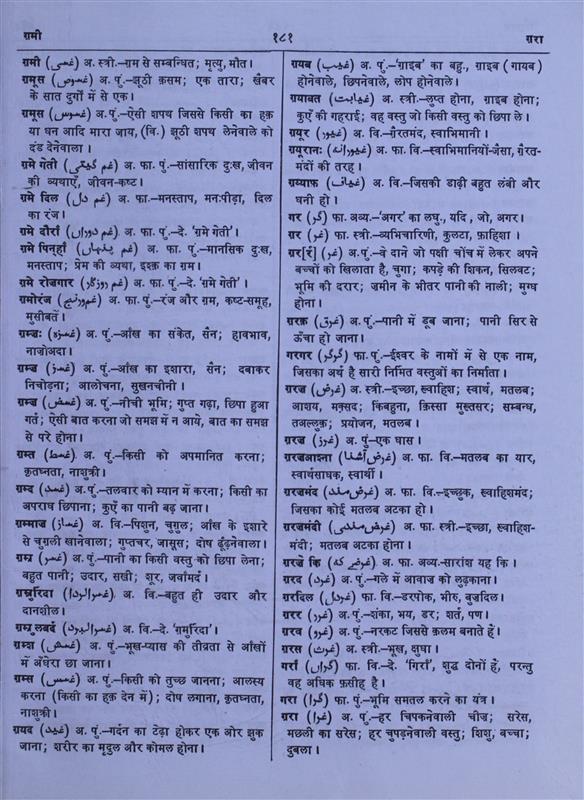 ग़मी
१८१
ग़रा
ग़मी (غمی) अ. स्त्री.–ग़म से सम्बन्धित; मृत्यु, मौत।
ग़मूस (غموص) अ. पुं.–झूठी क़सम; एक तारा; ख़ैबर
के सात दुर्गों में से एक।
ग़मूस (غموس) अ. पुं.–ऐसी शपथ जिससे किसी का हक़
या धन आदि मारा जाय, (वि.) झूठी शपथ लेनेवाले को
दंड देनेवाला।
ग़मे गेती (غم گیتی) अ. फा. पुं.–सांसारिक दुःख, जीवन
की व्यथाएँ, जीवन-कष्ट।
ग़मे दिल (غم دل) अ. फा.–मनस्ताप, मनःपीड़ा, दिल
का रंज।
ग़मे दौराँ (غم دوراں) अ. फा. पुं.–दे. ‘ग़मे गेती’।
ग़मे पिन्हाँ (غم پنہاں) अ. फा. पुं.–मानसिक दुःख,
मनस्ताप; प्रेम की व्यथा, इश्क़ का ग़म।
ग़मे रोजगार (غم روزگار) अ. फा. पुं.–दे. ‘ग़मे गेती’।
ग़मोरंज (غم و رنج) अ. फा. पुं.–रंज और ग़म, कष्ट-समूह,
मुसीबतें।
ग़म्जः (غمزہ) अ. पुं.–आँख का संकेत, सैन; हावभाव,
नाज़ोअदा।
ग़म्ज (غمز) अ. पुं.–आँख का इशारा, सैन; दबाकर
निचोड़ना; आलोचना, सुख़नचीनी।
ग़म्ज (غمض) अ. पुं.–नीची भूमि; गुप्त गढ़ा, छिपा हुआ
गर्त; ऐसी बात करना जो समझ में न आये, बात का समझ
से परे होना।
ग़म्त (غمط) अ. पुं.–किसी को अपमानित करना;
कृतघ्नता, नाशुक्री।
ग़म्द (غمد) अ. पुं.–तलवार को म्यान में करना; किसी का
अपराध छिपाना; कुएँ का पानी बढ़ जाना।
ग़म्माज (غماز) अ. वि.–पिशुन, चुग़ुल; आँख के इशारे
से चुग़ली खानेवाला; गुप्तचर, जासूस; दोष ढूँढ़नेवाला।
ग़म्र (غمر) अ. पुं.–पानी का किसी वस्तु को छिपा लेना;
बहुत पानी; उदार, सखी; शूर, जवाँमर्द।
ग़म्रुरिदा (غمرالردا) अ. वि.–बहुत ही उदार और
दानशील।
अ. वि.–दे. ‘ग़म्रुरिदा’।
अ. पुं.–भूख-प्यास की तीव्रता से आँखों
में अँधेरा छा जाना।
ग़म्स (غمص) अ. पुं.–किसी को तुच्छ जानना; आलस्य
करना (किसी का हक़ देन में); दोष लगाना, कृतघ्नता,
नाशुक्री।
ग़यद (غید) अ. पुं.–गर्दन का टेढ़ा होकर एक ओर झुक
जाना; शरीर का मृदुल और कोमल होना।
ग़यब (غیب) अ. पुं.–‘ग़ाइब’ का बहु., ग़ाइब (ग़ायब)
होनेवाले, छिपनेवाले, लोप होनेवाले।
ग़याबत (غیابت) अ. स्त्री.–लुप्त होना, ग़ाइब होना;
कुएँ की गहराई; वह वस्तु जो किसी वस्तु को छिपा ले।
ग़यूर (غیور) अ. वि.–ग़ैरतमंद, स्वाभिमानी।
ग़यूरानः (غیورانہ) अ. फा. वि.–स्वाभिमानियों-जैसा, ग़ैरत-
मंदों की तरह।
ग़य्याफ़ (غیاف) अ. वि.–जिसकी डाढ़ी बहुत लंबी और
घनी हो।
गर (گر) फा. अव्य.–‘अगर’ का लघु., यदि, जो, अगर।
ग़र (غر) फा. स्त्री.–व्यभिचारिणी, कुलटा, फ़ाहिशा।
ग़र[र्र] (غر) अ. पुं.–वे दाने जो पक्षी चोंच में लेकर अपने
बच्चों को खिलाता है, चुगा; कपड़े की शिकन, सिलवट;
भूमि की दरार; ज़मीन के भीतर पानी की नाली; मुग्ध
होना।
ग़रक़ (غرق) अ. पुं.–पानी में डूब जाना; पानी सिर से
ऊँचा हो जाना।
गरगर (گرگر) फा. पुं.–ईश्वर के नामों में से एक नाम,
जिसका अर्थ है सारी निर्मित वस्तुओं का निर्माता।
ग़रज़ (غرض) अ. स्त्री.–इच्छा, ख्वाहिश; स्वार्थ, मतलब;
आशय, मक़्सद; किंबहुना, क़िस्सा मुख़्तसर; सम्बन्ध,
तअल्लुक़; प्रयोजन, मतलब।
ग़रज़ (غرز) अ. पुं–एक घास।
ग़रज़आश्ना (غرض آشنا) अ. फा. वि.–मतलब का यार,
स्वार्थसाधक, स्वार्थी।
ग़रज़मंद (غرض مند) अ. फा. वि.–इच्छुक, ख्वाहिशमंद;
जिसका कोई मतलब अटका हो।
ग़रज़मंदी (غرض مندی) अ. फा. स्त्री.–इच्छा, ख्वाहिश-
मंदी; मतलब अटका होना।
ग़रज़े कि (غرضے کہ) अ. फा. अव्य.–सारांश यह कि।
ग़रद (غرد) अ. पुं.–गले में आवाज को लुढ़काना।
ग़रदिल (غردل) फा. वि.–डरपोक, भीरु, बुज़दिल।
ग़रर (غرر) अ. पुं.–शंका, भय, डर; शर्त, पण।
ग़रव (غرو) अ. पुं.–नरकट जिससे क़लम बनाते हैं।
ग़रस (غرث) अ. स्त्री.–भूख, क्षुधा।
गराँ (گراں) फा. वि.–दे. ‘गिराँ’, शुद्ध दोनों हैं, परन्तु
वह अधिक फ़सीह है।
गरा (گرا) फा. पुं.–भूमि समतल करने का यंत्र।
ग़रा (غرا) अ. पुं.–हर चिपकनेवाली चीज; सरेस,
मछली का सरेस; हर चुपड़नेवाली वस्तु; शिशु, बच्चा;
दुबला।